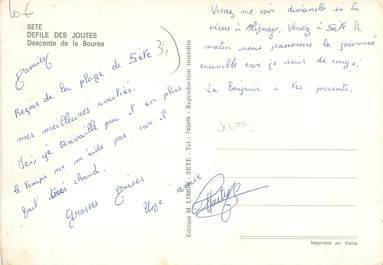 SETE
DEFILE DES JOUTES
Descente de la Bourse
Reçois de la plage de Sète
mes meilleures amitiés.
Ici, je travaille peu et en plus
le temps ne m'aide pas car il
fait très chaud.
Grosses bises
Venez me voir dimanche si tu
viens à Venez à Sète le
matin nous passerons la journée
ensemble car je suis de congé.
Le Bonjour à tes parents.
JOUTES
34
Edition M. LIMON - SETE - Tel.: - Reproduction interdite
Imprimé en Italie